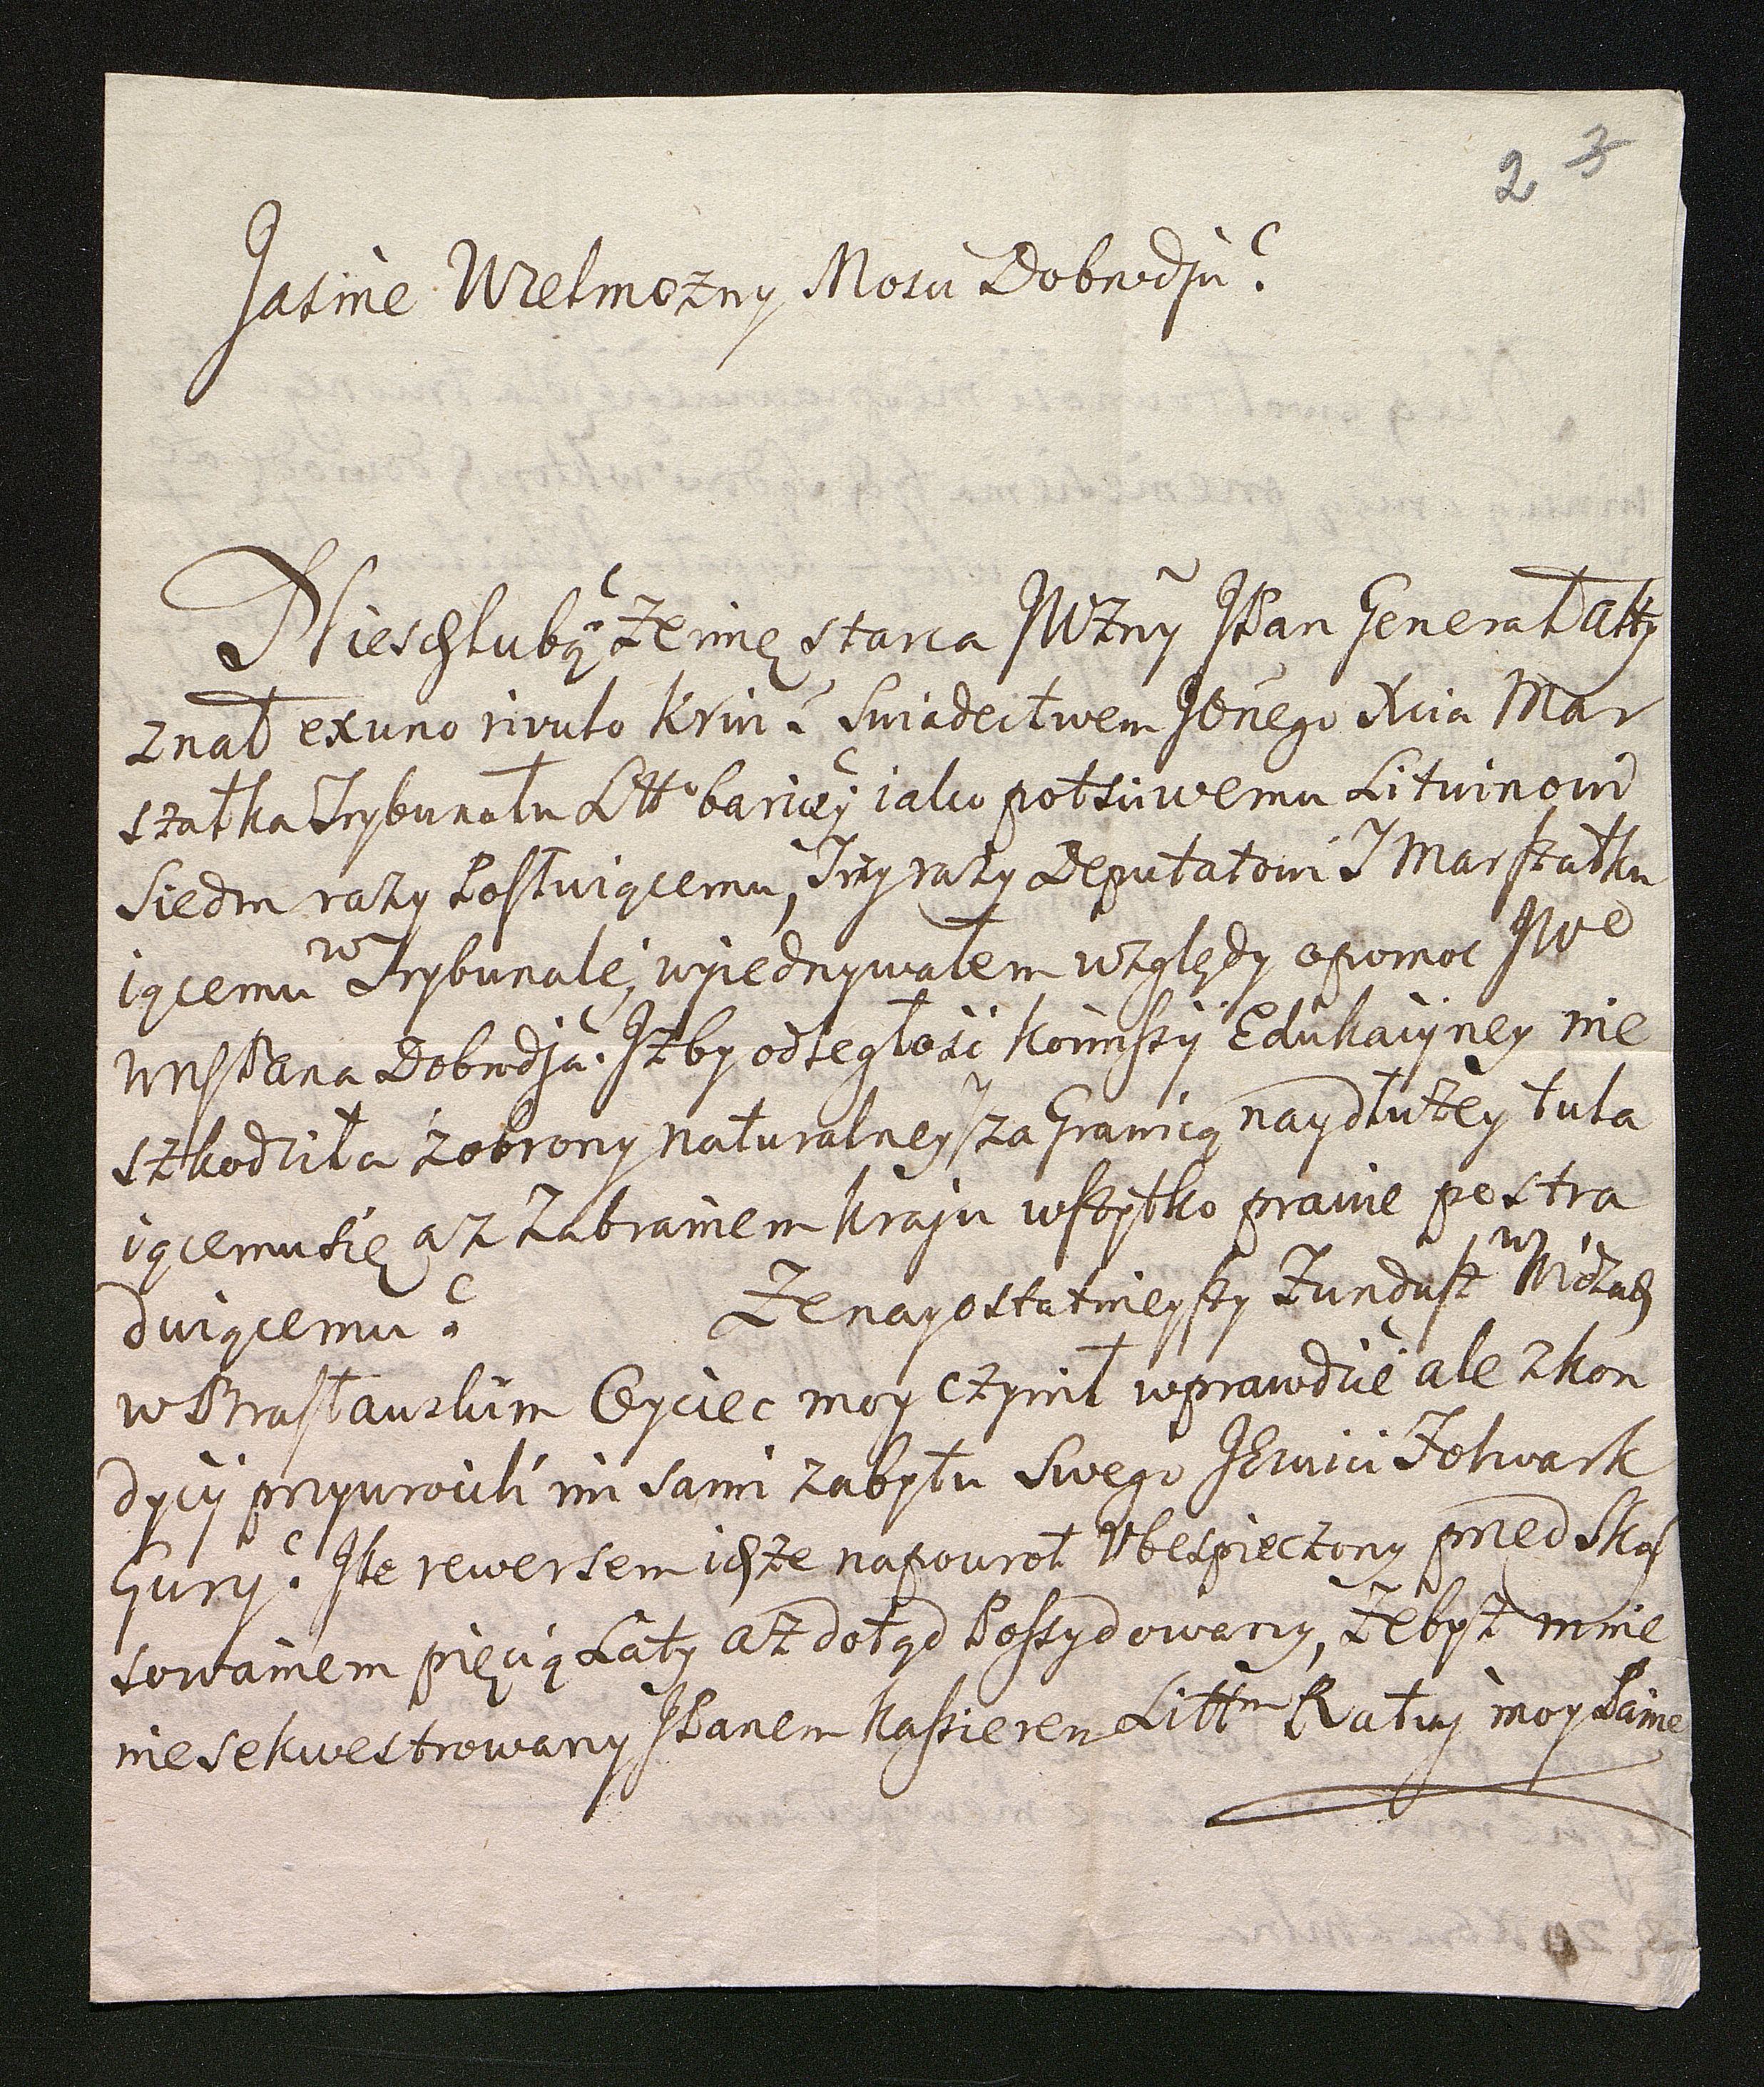 2 3
Jasnie Wielmożny Mosci Dobrodju
Nieschlubą że mię starca JWżny JPan Generał Artty
znał ex uno rivulo krwi Swiadectwem JOnego Xcia Mar
szałka Trybunału Litto barsiey iako poćsciwemu Litwinowi
Siedm razy Posłuiącemu, Trzy razy Deputatowi J Marszałku
iącemu w Trybunale, wyiednywałem względy o pomoc JWe
WMPana Dobrodja. Jżby odległość Kommissyi Edukacyiney nie
szkodziła z obrony naturalney / za Granicą naydłużey tuła
iącemu się a z Zabraniem kraju wszytko prawie postra
dwiącemu
Że nayostatnieyszy Fundusz w Widzach
w Brasławskim Oyciec moy czynił wprawdzie ale z kon
dycyi przywrocili mi sami zabytu Swego Jezuici Folwark
Gury. Jle rewersem ichże napowrot Ubespieczony przed Skas
sowaniem pięcią Laty aż dotąd Possydowany, Żebyż mnie
nie sekwestrowany JPanem Kassierem Littm Ratuj moy Panie